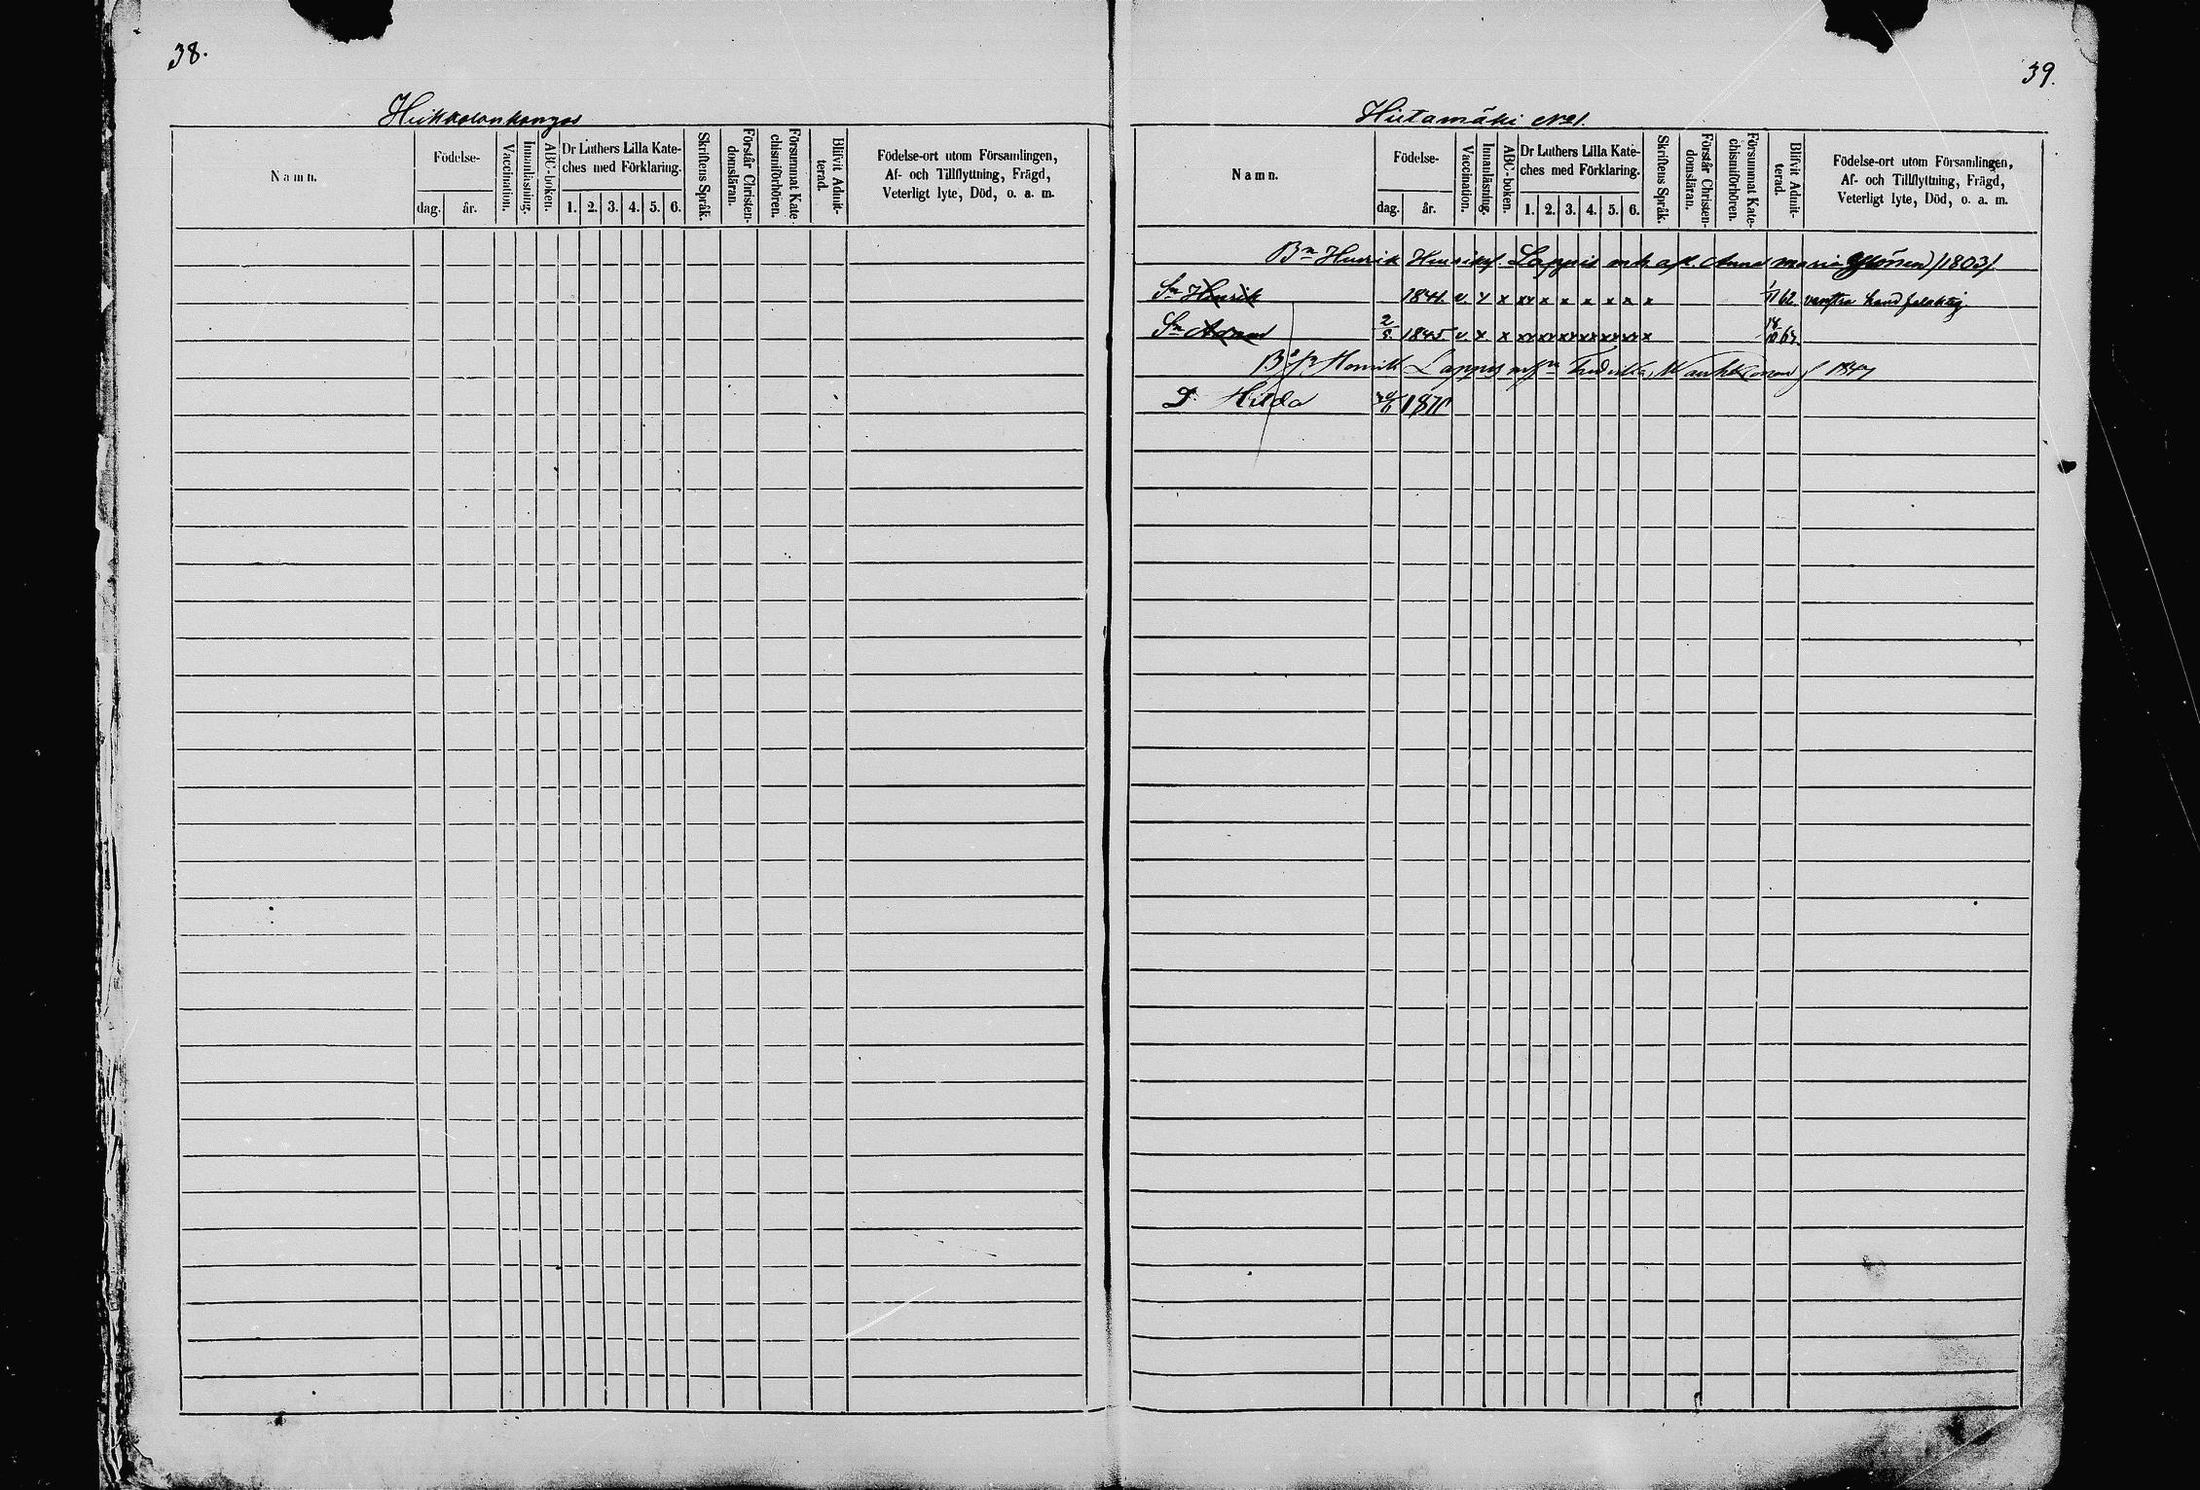 38.
Namn.
Födelse-
dag.
år.
Vaccination.
Innanläsning.
ABC-boken.
Dr Luthers Lilla Kate-
ches med Förklaring.
1. 2. 3. 4. 5. 6.
Skriftens Språk.
Förstår Christen-
domsläran.
Försummat Kate-
chismiförhören.
Blifvit Admit-
terad.
Födelse-ort utom Församlingen,
Af- och Tillflyttning, Frägd,
Veterligt lyte, Död, o. a. m.
39.
Hiitamäki No 1.
Namn.
Födelse-
dag.
år.
Vaccination.
Innanläsning.
ABC-boken.
Dr Luthers Lilla Kate-
ches med Förklaring.
1. 2. 3. 4. 5. 6.
Skriftens Språk.
Förstår Christen-
domsläran.
Försummat Kate-
chismiförhören.
Blifvit Admit-
terad.
Födelse-ort utom Församlingen,
Af- och Tillflyttning, Frägd,
Veterligt lyte, Död, o. a. m.
Bn Henrik Lappis och afl. Anna Maria /1803/
Sn Henrik 1841. v. x x xx x x x x x x x 62 venstra hand
Sn 2 1845 v. x x xx xx xx xx xx xx xx x
Henrik Lappis
D. Hilda 1871